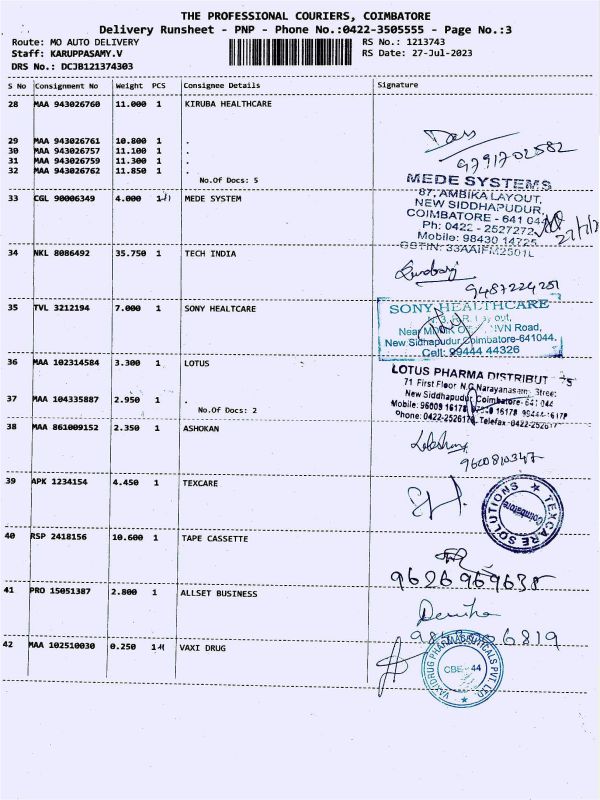 THE PROFESSIONAL COURIERS, COIMBATORE
Delivery Runsheet - PNP - Phone No.:0422-3505555 - Page No.:3
Route: MO AUTO DELIVERY RS No.: 1213743
Staff: KARUPPASAMY.V RS Date: 27-Jul-2023
DRS No.: DCJB121374303
S No Consignment No Weight PCS Consignee Details Signature
28 MAA 943026760 11.000 1 KIRUBA HEALTHCARE
29 MAA 943026761 10.800 1 .
30 MAA 943026757 11.100 1 .
31 MAA 943026759 11.300 1 .
32 MAA 943026762 11.850 1 .
No.Of Docs: 5
9791702582
33 CGL 90006349 4.000 1 MEDE SYSTEM
MEDE SYSTEMS
87, AMBIKA LAYOUT,
NEW SIDDHAPUDUR,
COIMBATORE - 641 044
Ph: 0422 - 2527272
Mobile: 98430 14725
GSTIN: 33AAIFM2501L
34 NKL 8086492 35.750 1 TECH INDIA
9487224251
35 TVL 3212194 7.000 1 SONY HEALTCARE
SONY HEALTHCARE
Near Road,
New Sidhapudur, Coimbatore-641044.
Cell: 99444 44326
36 MAA 102314584 3.300 1 LOTUS
37 MAA 104335887 2.950 1 .
No.Of Docs: 2
LOTUS PHARMA DISTRIBUT
71 First Floor N.G.Narayanasam Street
New Siddhapudur Coimbatore-641 044
Mobile: 96009 16178 16178
Phone: 0422-252617 Telefax-0422-252617
38 MAA 861009152 2.350 1 ASHOKAN
9600810347
39 APK 1234154 4.450 1 TEXCARE
TEXCARE SOLUTIONS
Coimbatore
40 RSP 2418156 10.600 1 TAPE CASSETTE
9626969638
41 PRO 15051387 2.800 1 ALLSET BUSINESS
6819
42 MAA 102510030 0.250 1 VAXI DRUG
VAXIDRUG PHARMACEUTICALS PVT. LTD.
CBE - 44